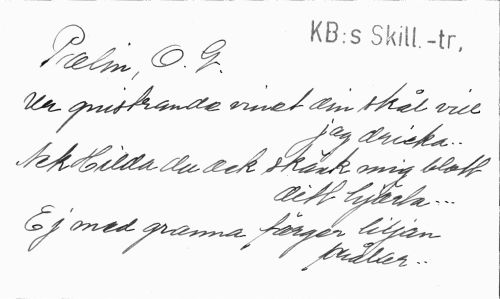 KB:s Skill.-tr,
Palin, O. G.
Ur gnistrande vinet din skål vill
jag dricka..
Ack Hilda du dock skänk mig blott
ditt hjerta...
Ej med granna färger liljan
prålar..